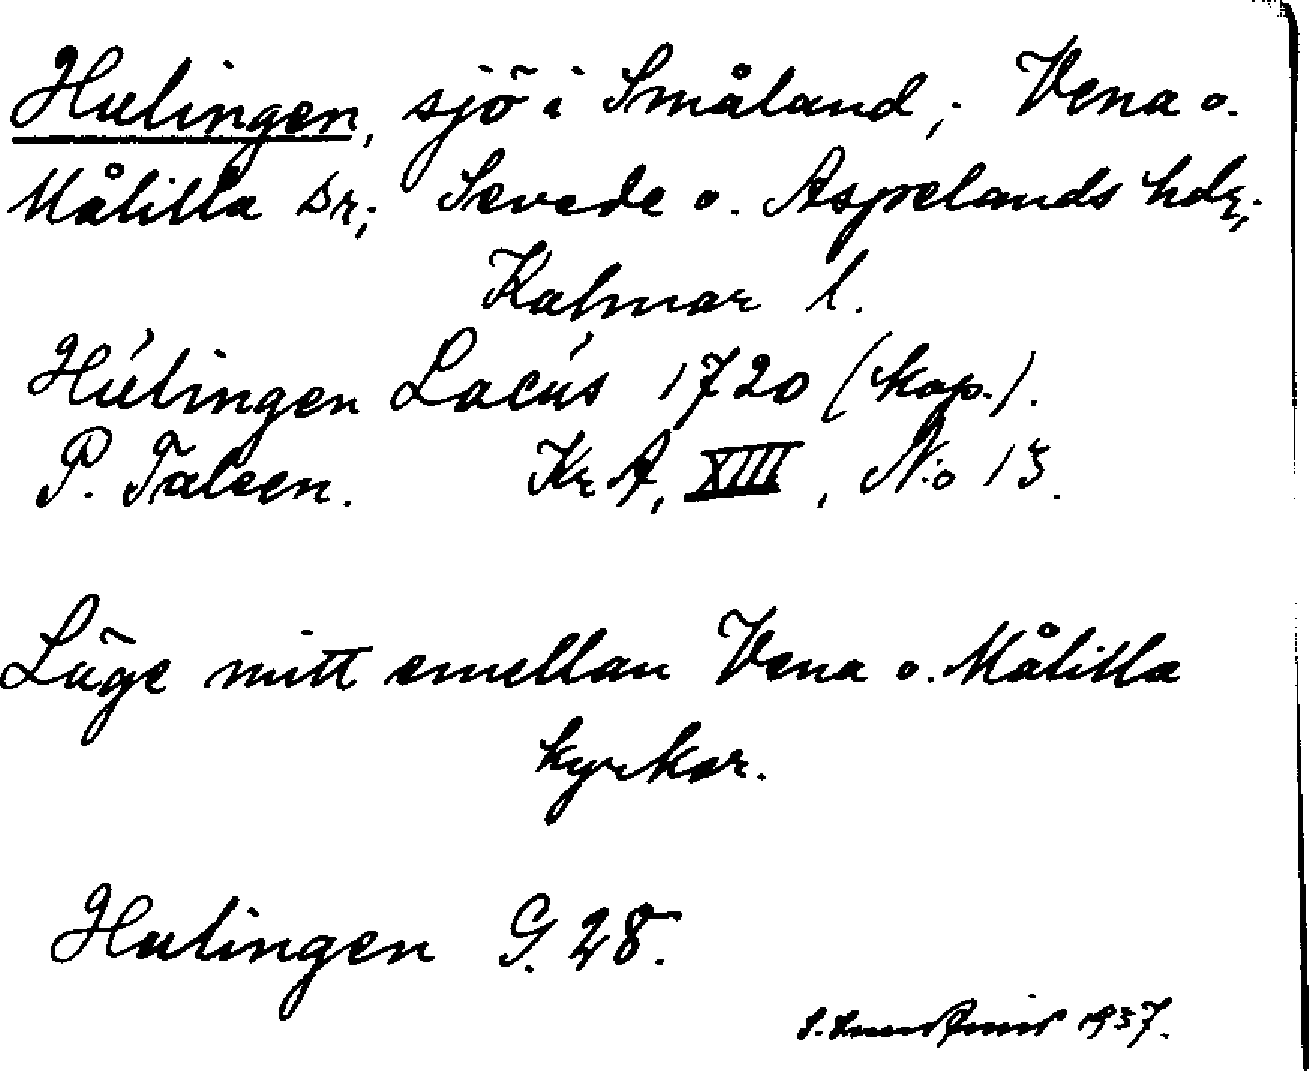 Hulingen, sjö i Småland; Vena o.
Målilla snr; Sevede o. Aspelands hdr;
Kalmar l.
Húlingen Lacús 1720 (kop.).
P. Talsen. KrA, XIII, No 13.
Läge mitt emellan Vena o. Målilla
kyrkor.
Hulingen G. 28.
1937.